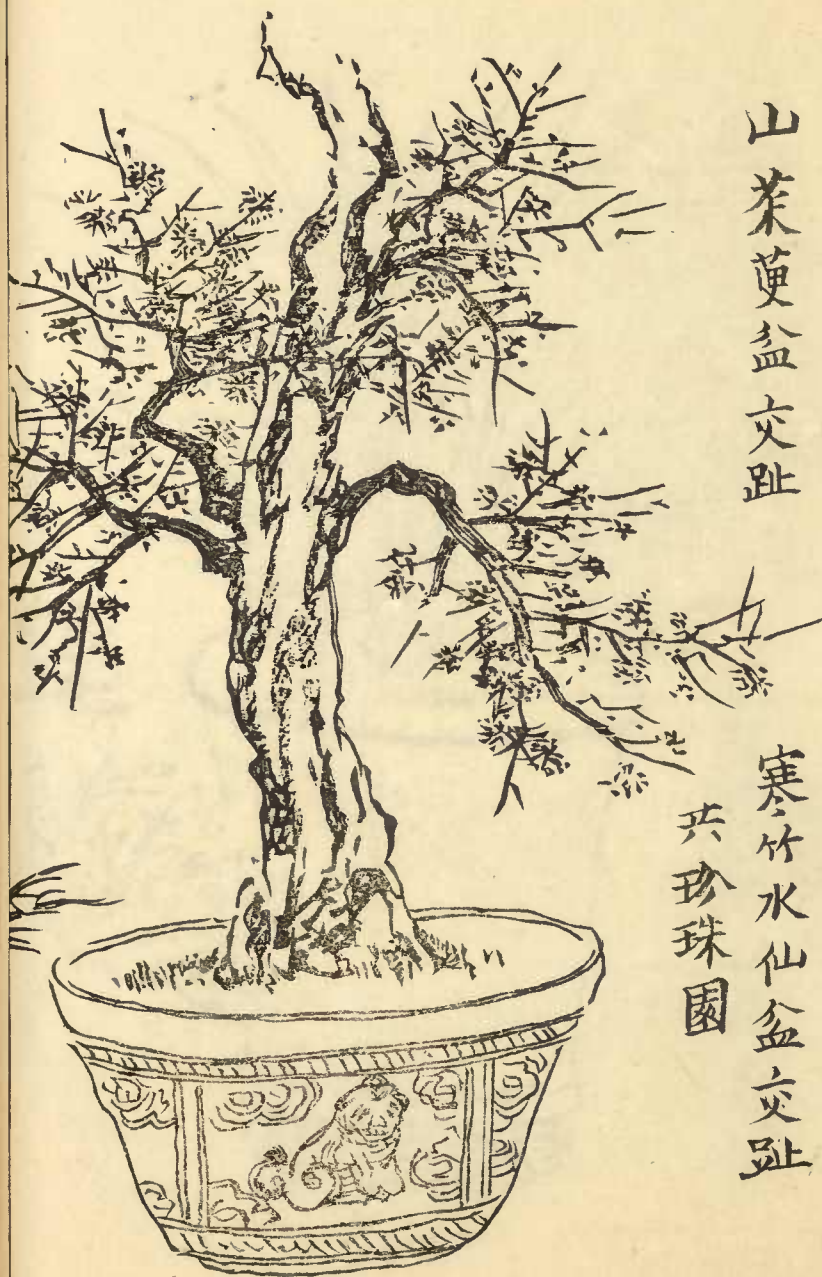 山茱萸盆交趾
寒竹水仙盆交趾
共珍珠園